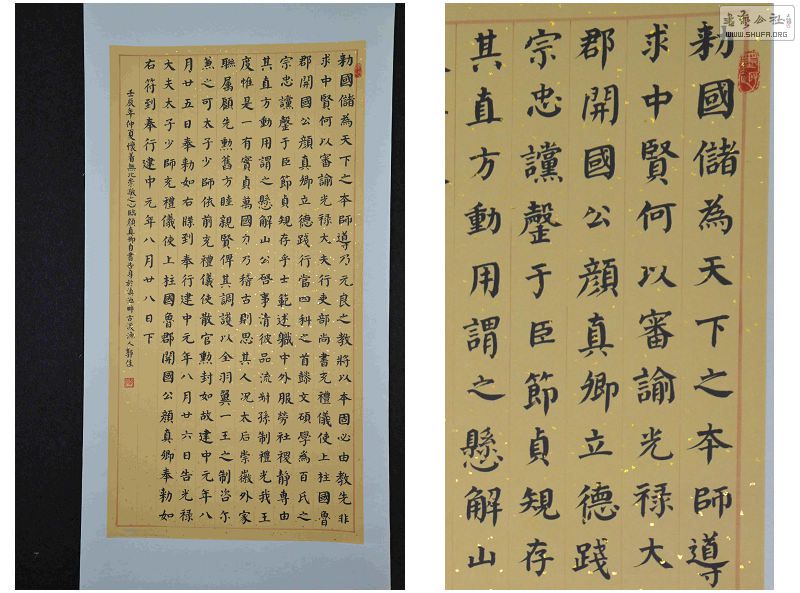 勅國儲為天下之本師導乃元良之教將以本固必由教先非
求中賢何以審諭光禄大夫行吏部尚書充禮儀使上柱國魯
郡開國公顏真卿立德踐行當四科之首懿文碩學為百氏之
宗忠讜罄于臣節貞規存乎士範述職中外服勞社稷靜專由
其直方動用謂之懸解山公啓事清彼品流叔孫制禮光我王
度惟是一有實貞萬國力乃稽古則思其人况太后崇徽外家
聯屬顧先勲舊方睦親賢俾其調護以全羽翼一王之制咨尔
兼之可太子少師依前充禮儀使散官勲封如故建中元年八
月廿五日奉勅如右牒到奉行建中元年八月廿六日告光禄
大夫太子少師充禮儀使上柱國魯郡開國公顏真卿奉勅如
右符到奉行建中元年八月廿八日下
壬辰年仲夏懷着無比崇敬之心臨顏真卿自書告身於滇池畔古滇漁人
勅國儲為天下之本師導
求中賢何以審諭光禄大
郡開國公顏真卿立德踐
宗忠讜罄于臣節貞規存
其直方動用謂之懸解山
WWW.SHUFA.ORG